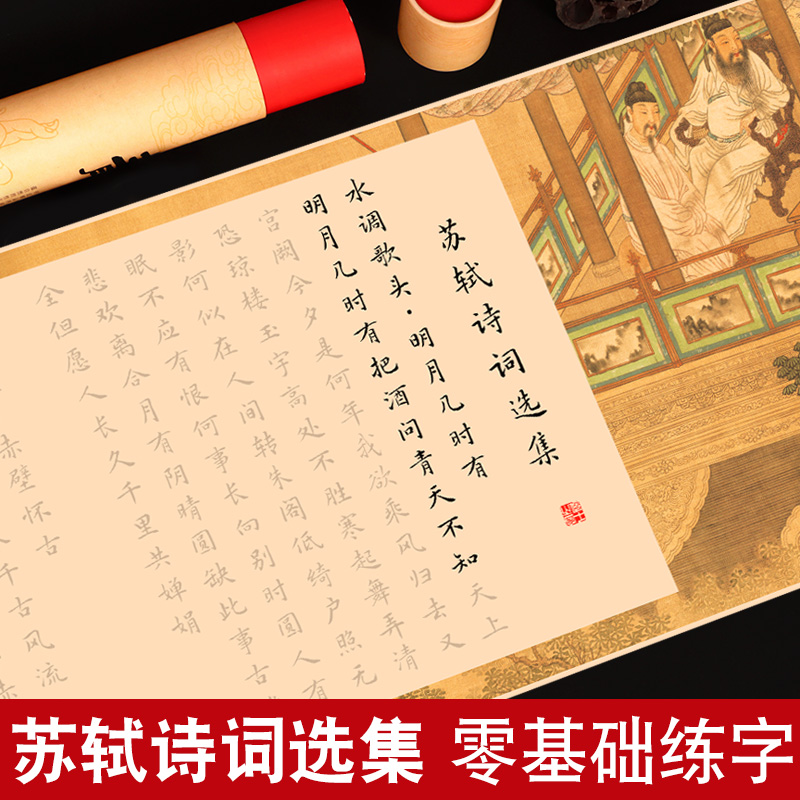 苏轼诗词选集
水调歌头·明月几时有
明月几时有把酒问青天不知天上
宫阙今夕是何年我欲乘风归去又
恐琼楼玉宇高处不胜寒起舞弄清
影何似在人间转朱阁低绮户照无
眠不应有恨何事长向别时圆人有
悲欢离合月有阴晴圆缺此事古
全但愿人长久千里共婵娟
赤壁怀古
千古风流
苏轼诗词选集 零基础练字